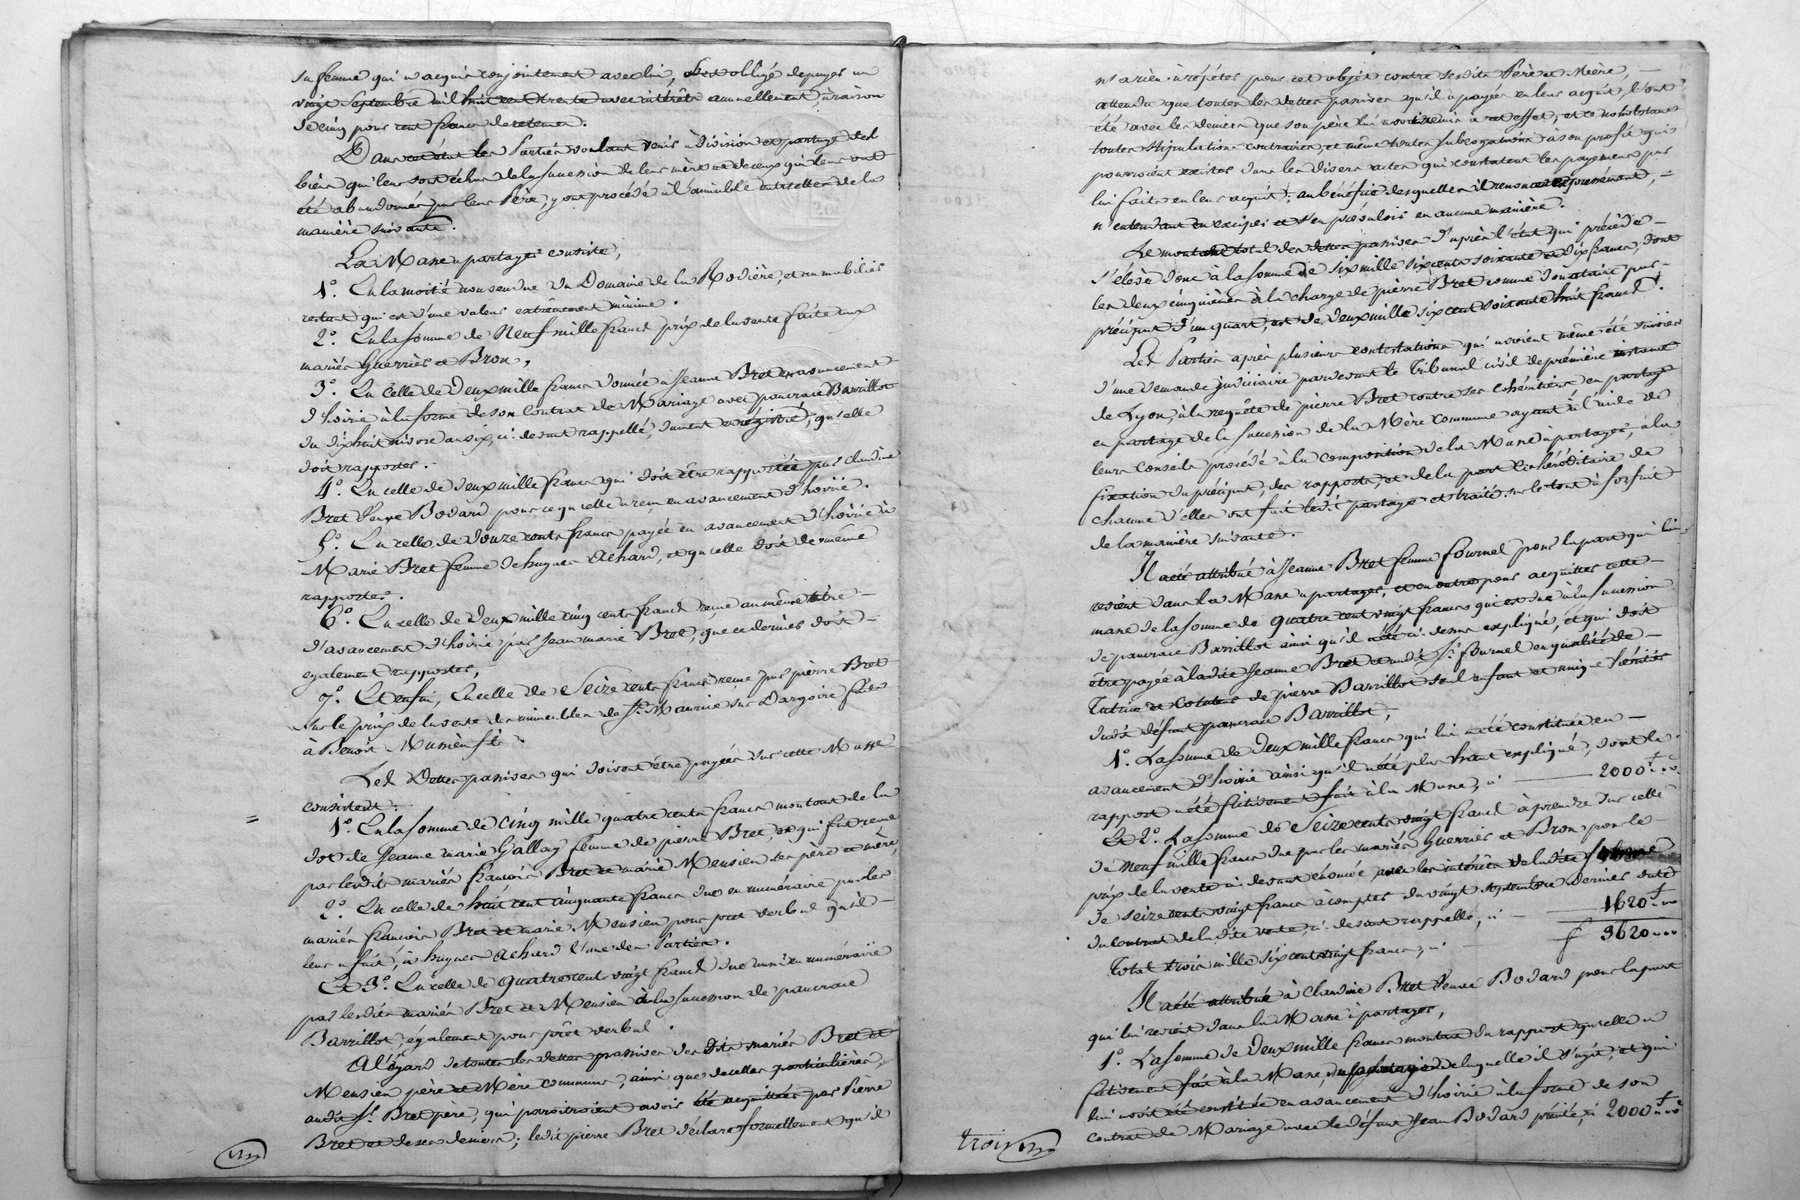 sa femme qui a acquis conjointement avec lui, s'est obligé de payer un
vingt Septembre mil huit cent trente avec intérêts annuellement, à raison
de cinq pour cent francs de retenue.
Dans cet état les Parties voulant venir à Division et partage des
biens qui leur sont échus de la succession de leur mère et de ceux qui leur ont
été abandonnés par leur Père, y ont procédé à l'amiable entr'elles de la
manière suivante.
La Masse à partager consiste,
1°. En la moitié non vendue du Domaine de la Rodière, et au mobilier
restant qui est d'une valeur extrêmement minime.
2°. En la somme de Neuf mille francs prix de la vente faite aux
mariés Guerrier et Bron,
3°. En celle de Deux mille francs donnée à Jeanne Bret en avancement
d'hoirie à la forme de son Contrat de Mariage avec pancrace Barrillot
du dix huit nivose an six, ci-devant rappellé, dument enregistré, qu'elle
doit rapporter.
4°. En celle de deux mille francs qui doit être rapportée par Claudine
Bret Veuve Bodard pour ce qu'elle a reçu en avancement d'hoirie.
5°. En celle de douze cents francs payée en avancement d'hoirie à
Marie Bret femme de hugues Achard, et qu'elle doit de même
rapporter.
6°. En celle de Deux mille cinq cents francs reçue au même titre
d'avancement d'hoirie par Jean marie Bret, que ce dernier doit
également rapporter,
7°. Et enfin, En celle de Seize cents francs reçue par pierre Bret
sur le prix de la vente des immeubles de St. Maurice sur Dargoire faite
à Benoit
Les Dettes passives qui doivent être payées sur cette Masse
consistent:
1°. En la somme de Cinq mille quatre cents francs montant de la
dot de Jeanne marie Gallay femme de pierre Bret, et qui fut reçue
par lesdits mariés françois Bret et marie Mensien ses père et mère,
2°. En celle de huit cent cinquante francs due en numéraire par les
mariés françois Bret et marie Mensien pour prêt verbal qu'il
leur a fait, à hugues Achard l'une des Parties.
Et 3°. En celle de quatre cent vingt francs due aussi en numéraire
par lesdits mariés Bret et Mensien à la succession de pancrace
Barrillot, également pour prêt verbal.
A l'égard de toutes les dettes passives des dits mariés Bret et
Mensien père et Mère communs, ainsi que de celles particulières
audit Sr. Bret père, qui paroitroient avoir été acquittées par Pierre
Bret et de ses deniers; ledit pierre Bret déclare formellement qu'il
n'a rien à répéter pour cet objet contre sesdits Père et Mère,
attendu que toutes les dettes passives qu'il a payées en leur acquit, l'ont
été avec les deniers que son père lui a à cet effet, et ce nonobstant
toutes stipulations contraires, et même toutes subrogations à son profit qui
pourroient exister dans les divers actes qui constatent les payemens par
lui faits en leur acquit; au bénéfice desquelles il renonce expressément,
n'entendant en exciper et s'en prévaloir en aucune manière.
Le montant total des dettes passives d'après l'état qui précède
s'élève donc à la somme de six mille six cents soixante et dix francs, dont
les deux cinquièmes à la charge de pierre Bret comme donataire par
préciput d'un quart, est de deux mille six cent soixante huit francs.
Les Parties après plusieurs contestations qui avoient même été suivies
d'une demande judiciaire pardevant le Tribunal civil de première instance
de Lyon, à la requête de pierre Bret contre ses cohéritiers en partage
en partage de la succession de la Mère commune ayant à l'aide de
leurs Conseils procédé à la composition de la Masse à partager, à la
fixation du préciput, des rapports, et de la part cohéréditaire de
chacune d'elles ont fait ledit partage et traité sur le tout à forfait
de la manière suivante.
Il a été attribué à Jeanne Bret femme fournel pour la part qui lui
revient dans la Masse à partager, et en outre pour acquitter cette
masse de la somme de quatre cent vingt francs qui est due à la succession
de pancrace Barrillot ainsi qu'il a été ci-dessus expliqué, et qui doit
être payée à ladite Jeanne Bret et audit Sr. fournel en qualité de
Tutrice et Cotuteur de pierre Barrillot seul enfant et unique héritier
dudit défunt pancrace Barrillot,
1°. La somme de Deux mille francs qui lui a été constituée en
avancement d'hoirie ainsi qu'il a été plus haut expliqué, dont le
rapport a été fictivement fait à la Masse, ci 2000 f.
Et 2°. La somme de Seize cents vingt francs à prendre sur celle
de Neuf mille francs due par les mariés Guerrier et Bron pour le
prix de la vente ci-devant énoncée avec les intérêts de ladite somme
de seize cents vingt francs à compter du vingt Septembre dernier date
du contrat de la dite vente, ci-devant rappellé, ci 1620 f.
Total trois mille six cent vingt francs, ci f 3620
Il a été attribué à Claudine Bret Veuve Bodard pour la part
qui lui revient dans la Masse à partager,
1°. La somme de Deux mille francs montant du rapport qu'elle a
fictivement fait à la Masse, de laquelle il s'agit, et qui
lui avoit été constituée en avancement d'hoirie à la forme de son
contrat de Mariage avec le défunt Jean Bodard précité, ci 2000 f.
trois